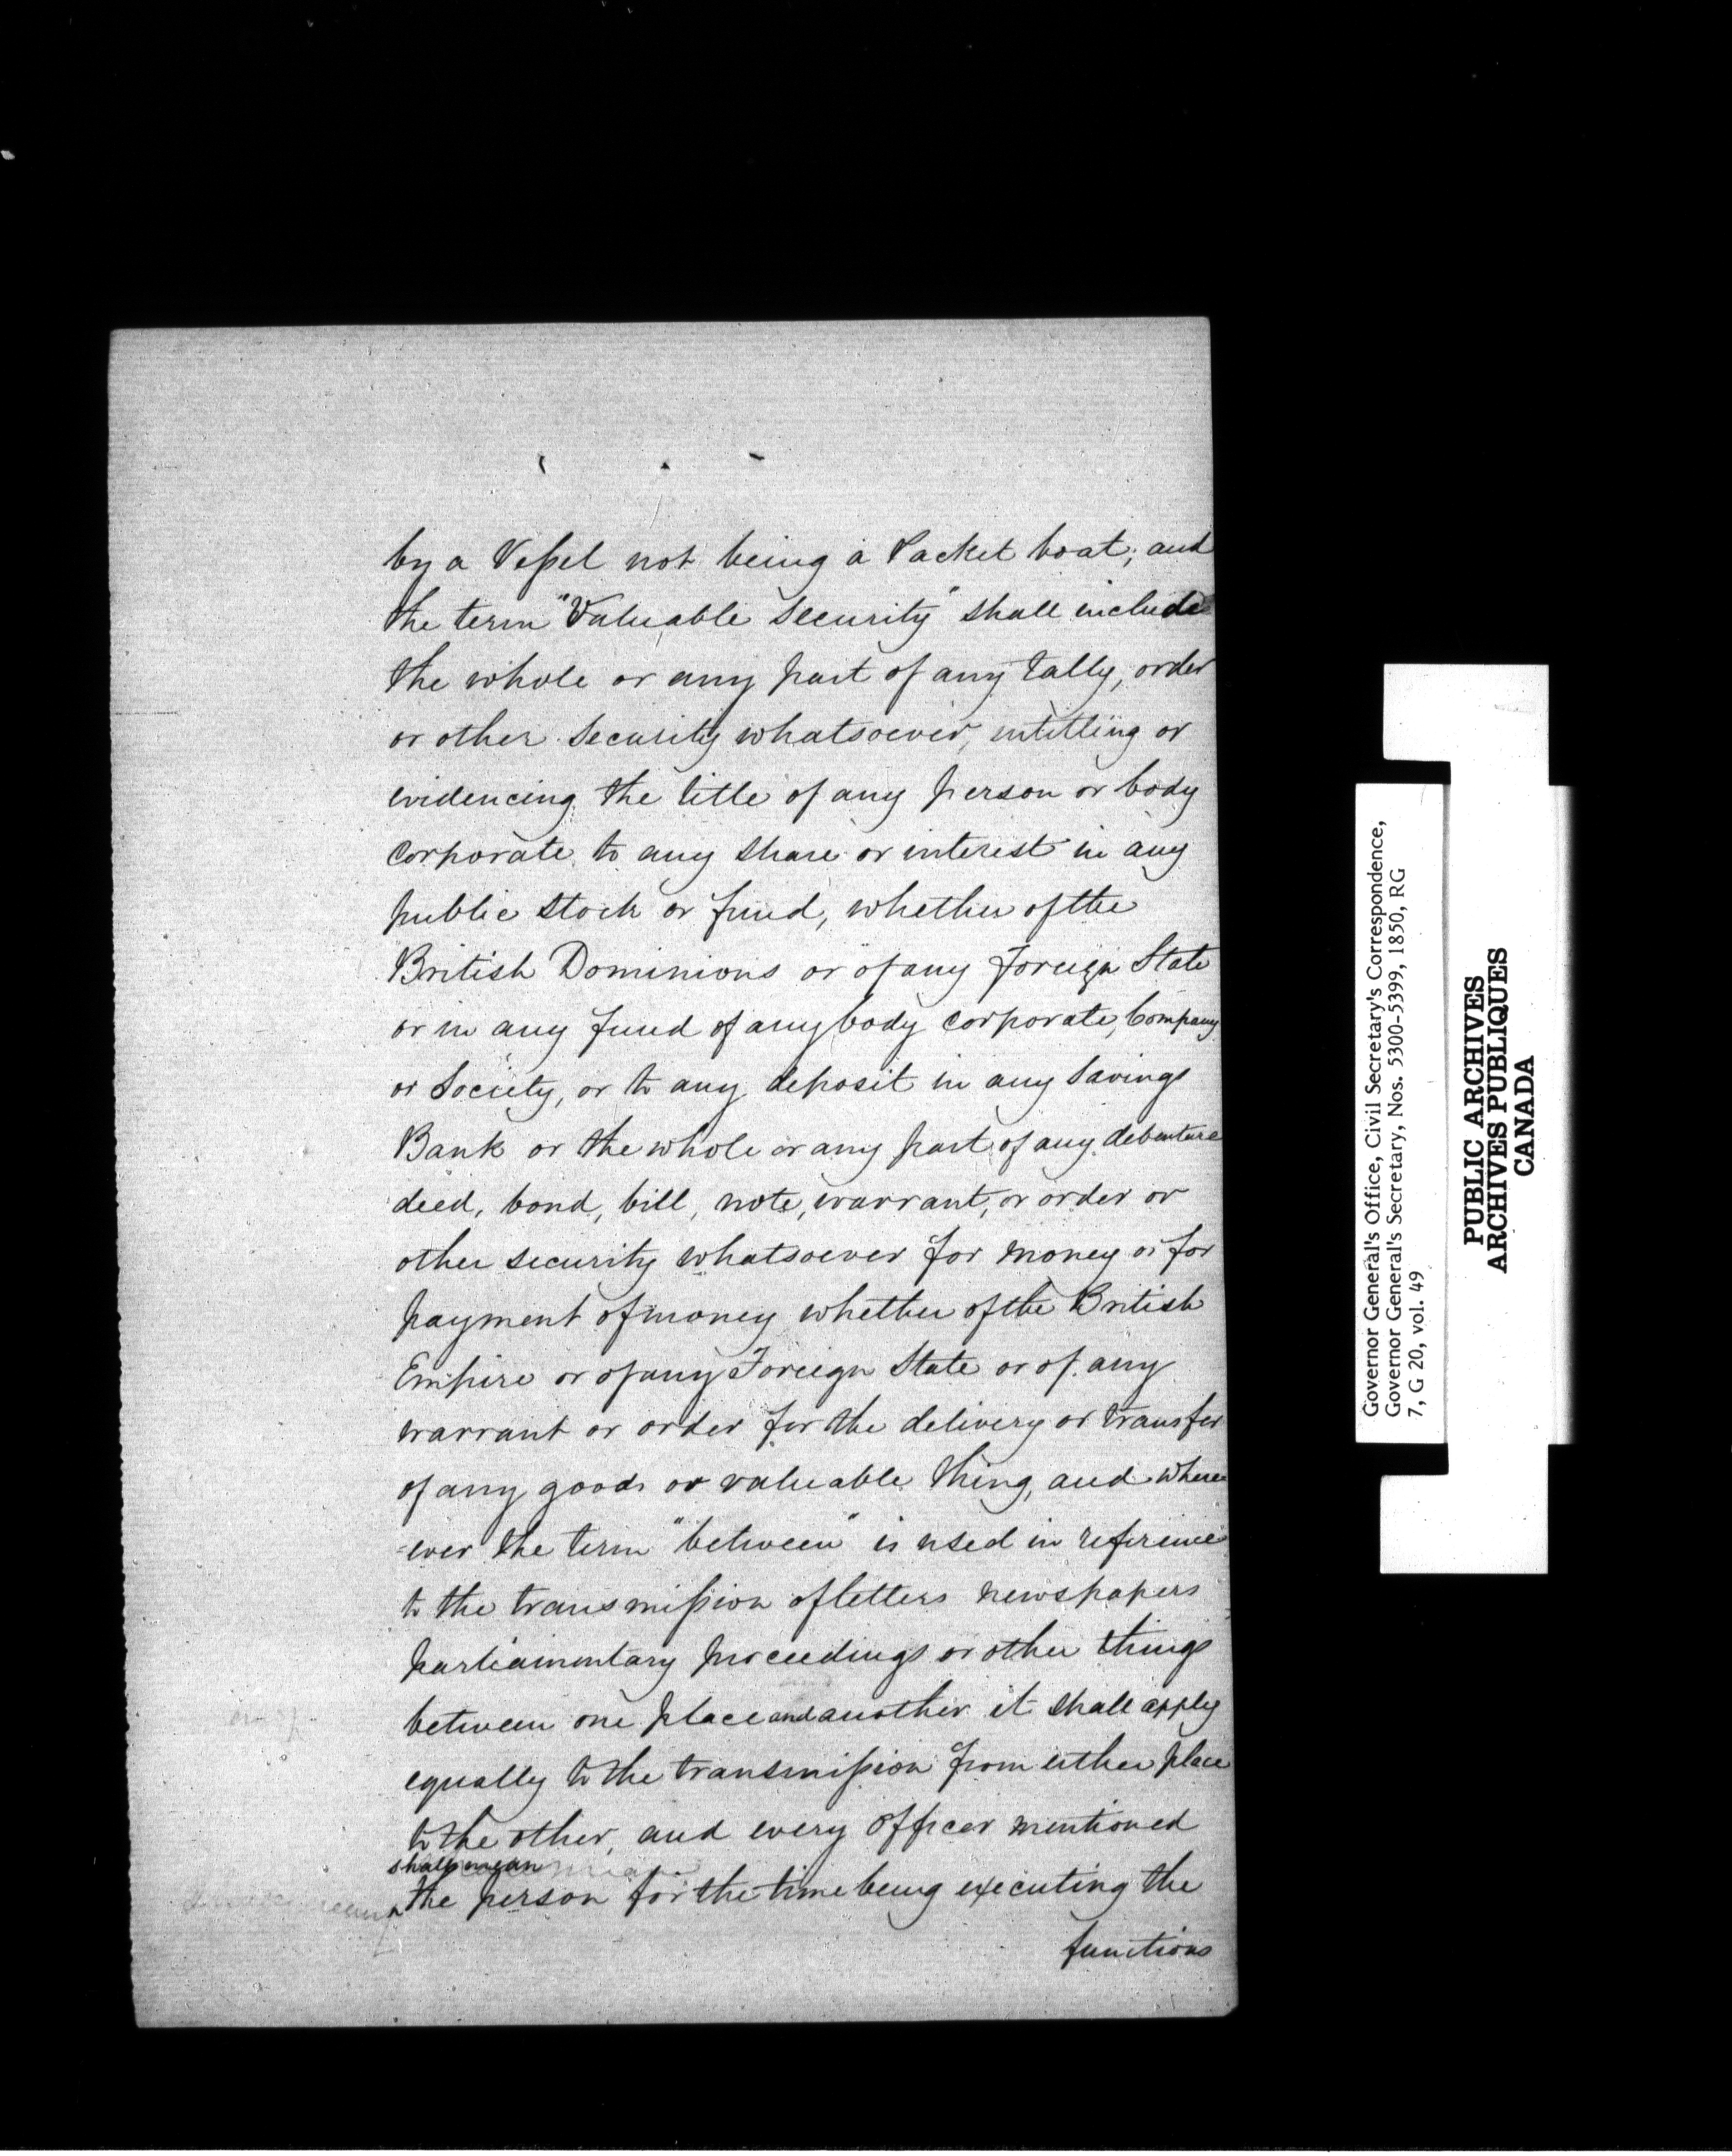 by a Vessel not being a Packet boat; and
the term "Valuable Security" shall include
the whole or any part of any tally, order
or other Security whatsoever, intitling or
evidencing the title of any person or body
corporate to any share or interest in any
public Stock or fund, whether of the
British Dominions or of any foreign State
or in any fund of any body corporate, Company
or Society, or to any deposit in any Savings
Bank or the whole or any part of any debenture
deed, bond, bill, note, warrant, or order or
other security whatsoever for money or for
payment of money whether of the British
Empire or of any Foreign State or of any
warrant or order for the delivery or transfer
of any goods or valuable thing, and where
-ever the term "between" is used in reference
to the transmission of letters newspapers
parliamentary proceedings or other things
between one place and another it shall apply
equally to the transmission from either place
to the other, and every Officer mentioned
shall mean
the person for the time being executing the
functions
Governor General's Office, Civil Secretary's Correspondence,
Governor General's Secretary, Nos. 5300-5399, 1850, RG
7, G 20, vol. 49
PUBLIC ARCHIVES
ARCHIVES PUBLIQUES
CANADA